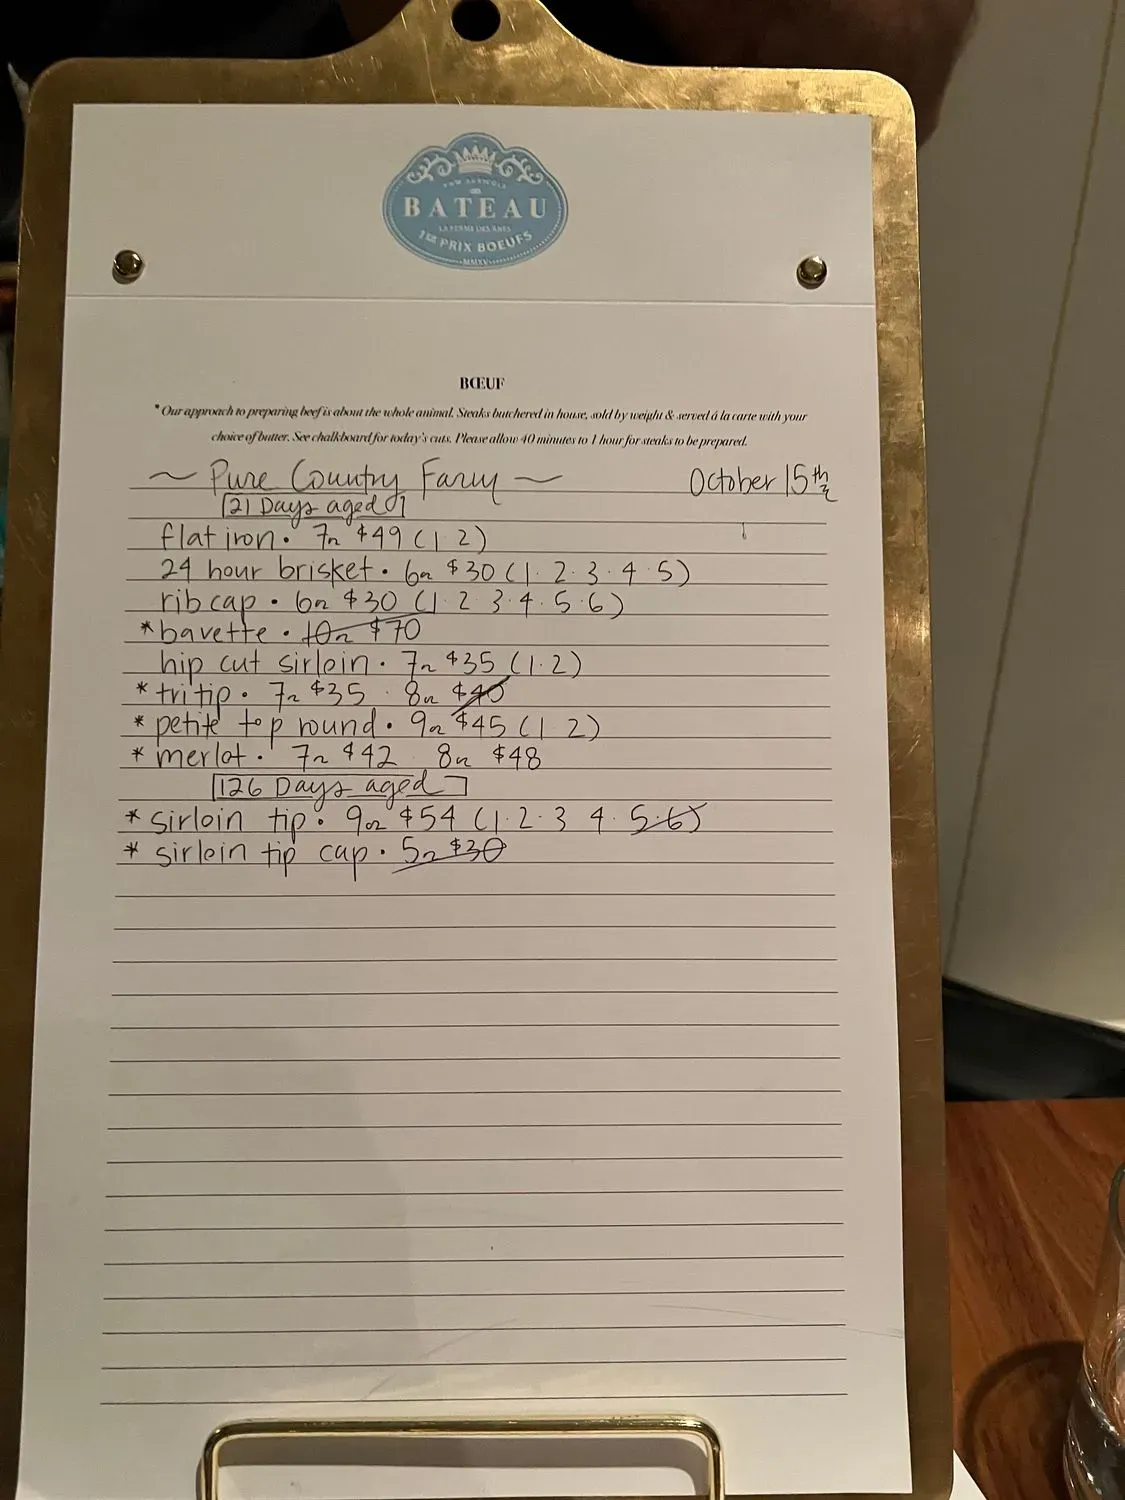 BATEAU
LA FERME DES ANES
1ER PRIX BOEUFS
MMXV
BŒUF
*Our approach to preparing beef is about the whole animal. Steaks butchered in house, sold by weight & served á la carte with your
choice of butter. See chalkboard for today's cuts. Please allow 40 minutes to 1 hour for steaks to be prepared.
~ Pure Country Farm ~ October 15th
21 Days aged
flat iron · 7oz $49 (1 · 2)
24 hour brisket · 6oz $30 (1 · 2 · 3 · 4 · 5)
rib cap · 6oz $30 (1 · 2 · 3 · 4 · 5 · 6)
*bavette · 10oz $70
hip cut sirloin · 7oz $35 (1 · 2)
*tritip · 7oz $35 · 8oz $40
*petite top round · 9oz $45 (1 · 2)
*merlot · 7oz $42 · 8oz $48
126 Days aged
*sirloin tip · 9oz $54 (1 · 2 · 3 · 4 · 5 · 6)
*sirloin tip cap · 5oz $30